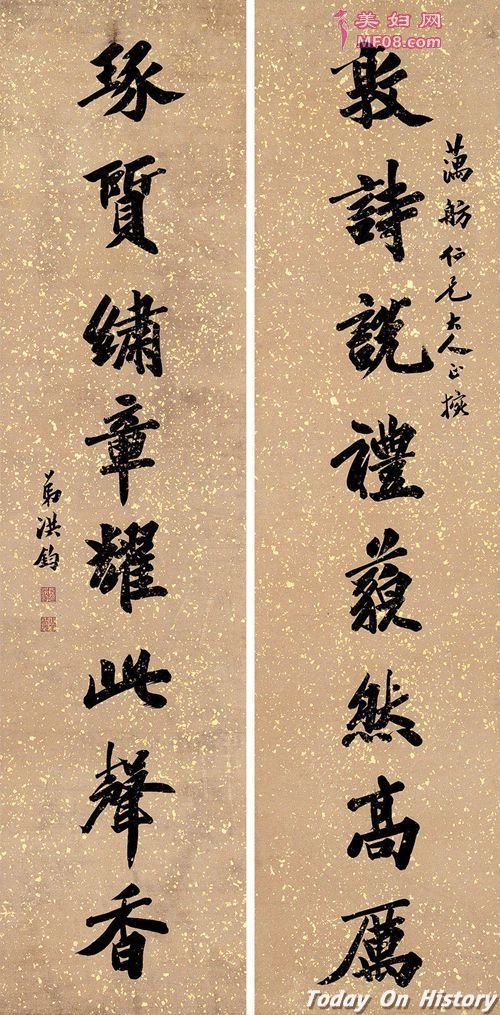 美妇网
MF08.com
藕舫仁兄大人正掾
敦詩說禮藐然高厲
琢質繡章耀此聲香
弟洪鈞
Today On History